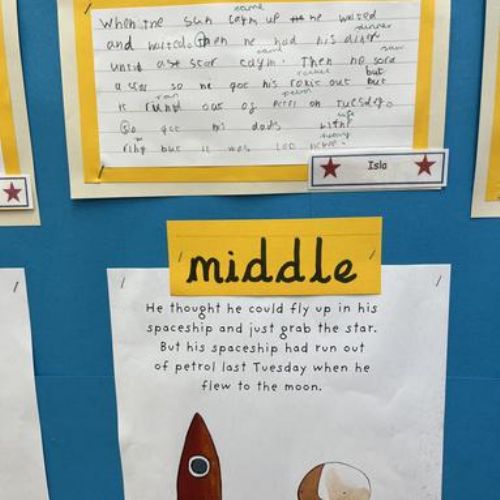 came
When the sun caym up he waited
dinner
and waited. Then he had his diner
came saw
until a star caym. Then he sord
rocket but
a star so he got his rokit out but
ran petrol
it rund out of petrl on Tuesday.
So get his dads with
but it was too
Isla
middle
He thought he could fly up in his
spaceship and just grab the star.
But his spaceship had run out
of petrol last Tuesday when he
flew to the moon.